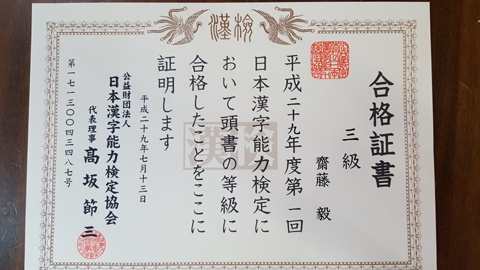 漢検
合格証書
三級
齋藤 毅
平成二十九年度第一回
日本漢字能力検定に
おいて頭書の等級に
合格したことをここに
証明します
平成二十九年七月十三日
公益財団法人
日本漢字能力検定協会
代表理事 髙坂節三
第一七一三〇〇四三四八七号
漢検